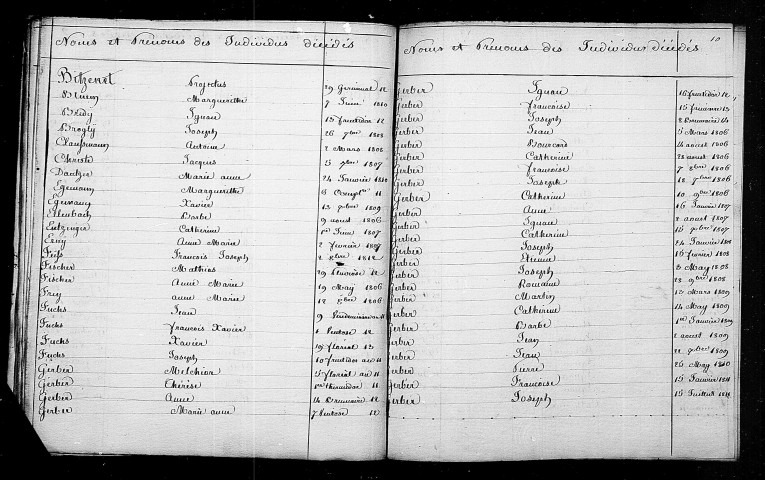 Noms et Prénoms des Individus décédés
Bitzenet Projectus 29 Germinal 12
Marguerithe 7 Juin 1810
Bridy Ignace 13 fructidor 12
Brogly Joseph 26 7bre 1808
Antoine 2 Mars 1808
Christe Jacques 1807
Dantzer Marie anne 24 Janvier 1810
Egemann Marguerithe 11
Egemann Xavier 13 1809
Barbe 9 aoust 1806
Catherine 1er Juin 1807
Erny Anne Marie 2 fevrier 1807
François Joseph 1812
Fischer Mathias 12
Fischer Anne Marie 19 May 1806
Frey anne Marie 12 Xbre 1806
Fuchs Jean 9 Vendemiaire 11
Fuchs francois Xavier Ventose 12
Fuchs Xavier 19 floréal 13
Fuchs Joseph 10 fructidor an 11
Gerber Melchior 5 floréal an 11
Gerber Thérèse thermidor 11
Gerber Anne 14 Brumaire 12
Gerber Marie anne 7 Ventose 12
10
Noms et Prénoms des Individus décédés
Gerber Ignace 16 fructidor 12
Gerber francoise 15 frimaire 13
Gerber Joseph 2 Brumaire 14
Gerber Jean 5 Mars 1806
Gerber 14 aoust 1806
Gerber Catherine 28 aoust 1806
Gerber francoise 7 1806
Gerber Joseph 18 1806
Gerber Catherine 10 9bre 1806
Gerber Anne 16 Janvier 1807
Gerber Ignace 2 aoust 1807
Gerber Catherine 15 1807
Gerber Joseph 24 Janvier 1808
Gerber Etienne 16 fevrier 1808
Gerber Joseph 3 May 1808
Gerber Romaine 23 9bre 1808
Gerber Martin 13 Mars 1809
Gerber Catherine 14 May 1809
Gerber Barbe 1er Janvier 1809
Gerber Jean 2 aoust 1809
Gerber Jean 1809
Gerber Pierre 25 May 1810
Gerber Francoise 15 Janvier 1811
Gerber Joseph 15 Juillet 1811